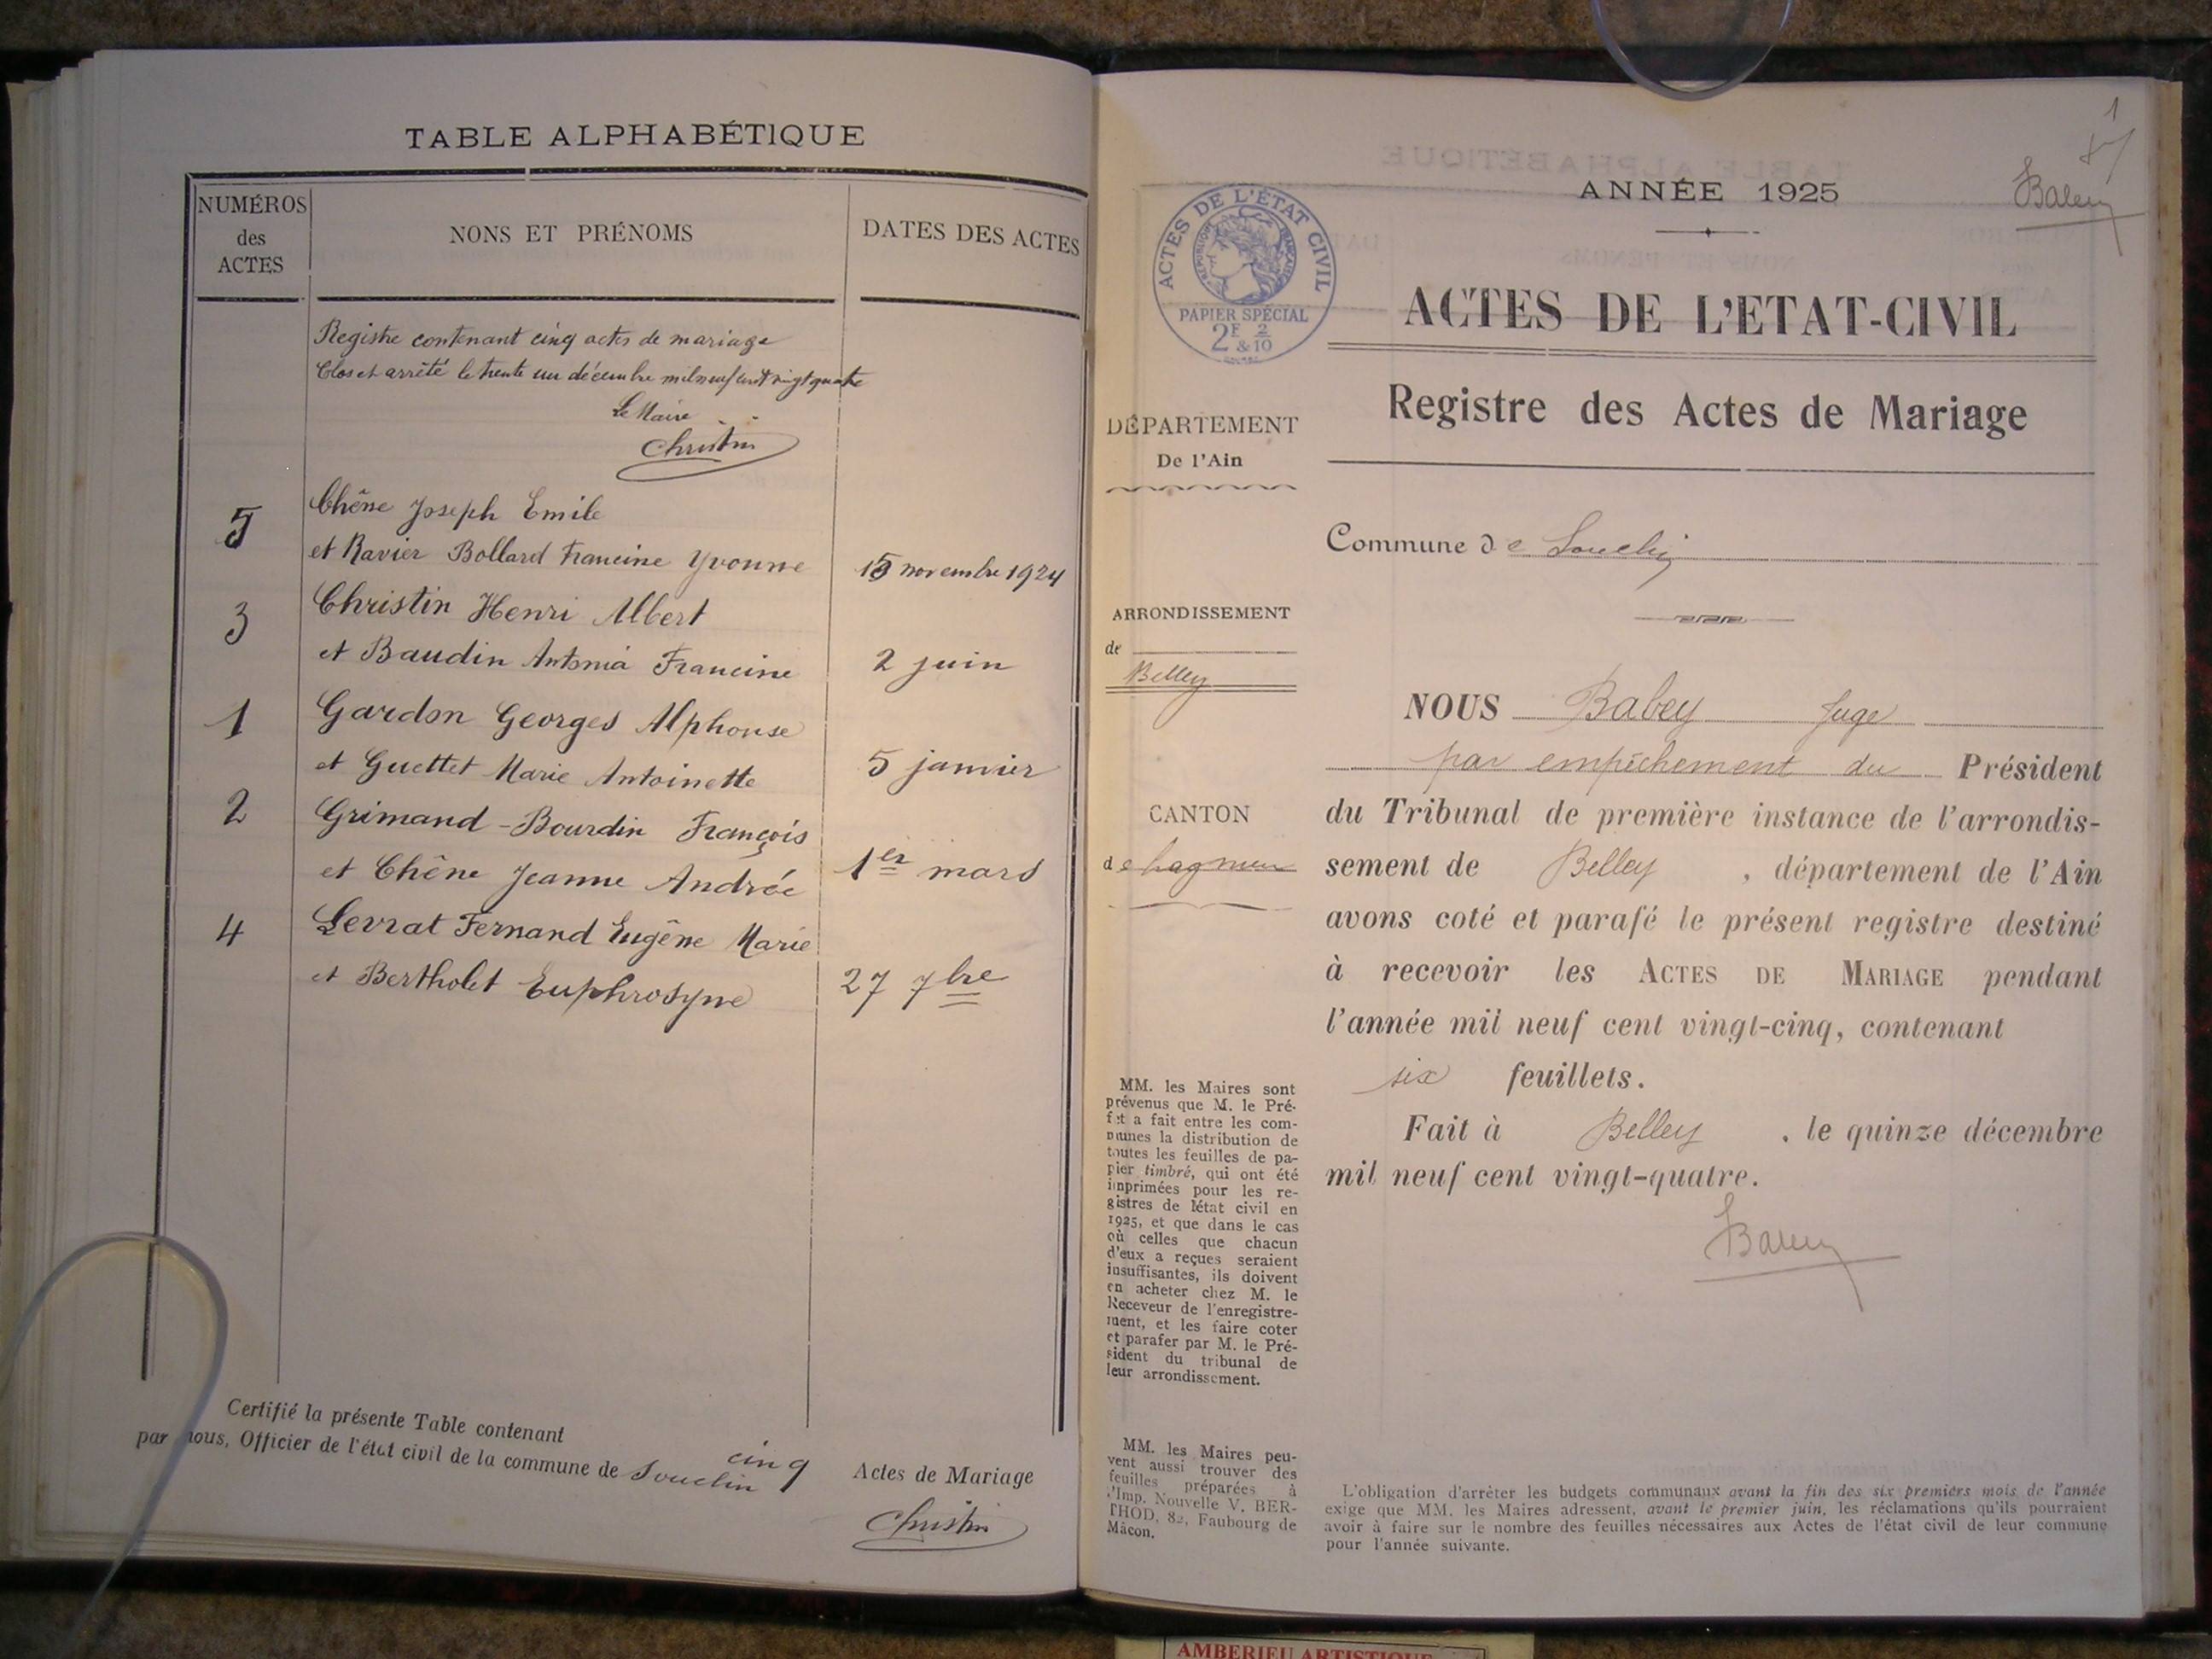 TABLE ALPHABÉTIQUE
NUMÉROS
des
ACTES
NONS ET PRÉNOMS
DATES DES ACTES
Registre contenant cinq actes de mariage
Clos et arrêté le trente un décembre mil neuf cent vingt quatre
Le Maire
Christin
5
Chêne Joseph Emile
et Ravier Bollard Francine Yvonne
novembre 1924
3
Christin Henri Albert
et Baudin Antonia Francine
2 juin
1
Gardon Georges Alphonse
et Guettet Marie Antoinette
5 janvier
2
Grimand-Bourdin François
et Chêne Jeanne Andrée
1er mars
4
Levrat Fernand Eugêne Marie
et Bertholet Euphrosyne
27 7bre
Certifié la présente Table contenant cinq Actes de Mariage
par nous, Officier de l'état civil de la commune de Souclin
Christin
1
ANNÉE 1925
ACTES DE L'ÉTAT CIVIL
RÉPUBLIQUE FRANÇAISE
PAPIER SPÉCIAL
2F & 2/10
ACTES DE L'ETAT-CIVIL
Registre des Actes de Mariage
DÉPARTEMENT
De l'Ain
Commune de Souclin
ARRONDISSEMENT
de
Belley
CANTON
de Lagnieu
NOUS Babey Juge
par empêchement du Président
du Tribunal de première instance de l'arrondis-
sement de Belley , département de l'Ain
avons coté et parafé le présent registre destiné
à recevoir les ACTES DE MARIAGE pendant
l'année mil neuf cent vingt-cinq, contenant
six feuillets.
Fait à Belley , le quinze décembre
mil neuf cent vingt-quatre.
MM. les Maires sont
prévenus que M. le Pré-
fet a fait entre les com-
munes la distribution de
toutes les feuilles de pa-
pier timbré, qui ont été
imprimées pour les re-
gistres de létat civil en
1925, et que dans le cas
où celles que chacun
d'eux a reçues seraient
insuffisantes, ils doivent
en acheter chez M. le
Receveur de l'enregistre-
ment, et les faire coter
et parafer par M. le Pré-
sident du tribunal de
leur arrondissement.
MM. les Maires peu-
vent aussi trouver des
feuilles préparées à
l'Imp. Nouvelle V. BER-
THOD, 82, Faubourg de
Mâcon.
L'obligation d'arrêter les budgets communaux avant la fin des six premiers mois de l'année
exige que MM. les Maires adressent, avant le premier juin, les réclamations qu'ils pourraient
avoir à faire sur le nombre des feuilles nécessaires aux Actes de l'état civil de leur commune
pour l'année suivante.
AMBERIEU ARTISTIQUE